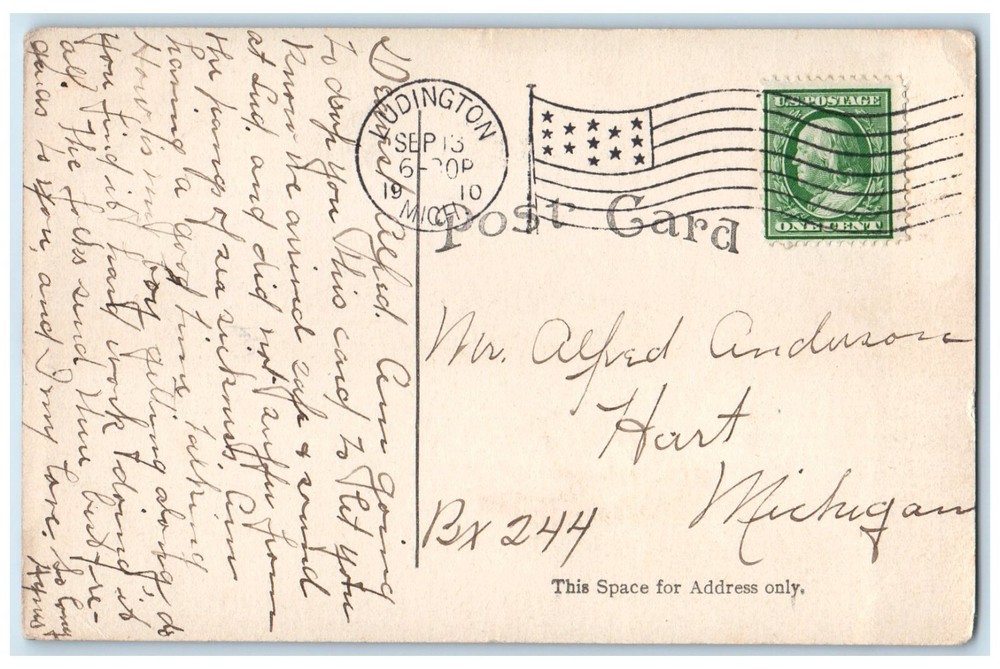 Dearest Alfred. Am going
to drop you this card to let you
know we arrived safe & sound
at Lud. and did not suffer from
the pangs of sea sickness. Am
having a good time talking
How is my boy getting along do
you find it hard work doing it
all. The folks send their best re-
gards to you, and I my love. So long
Agnes
LUDINGTON
SEP 13
6-30P
1910
MICH.
U.S. POSTAGE
ONE CENT
Post Card
Mr. Alfred Anderson
Hart
Michigan
Bx 244
This Space for Address only.